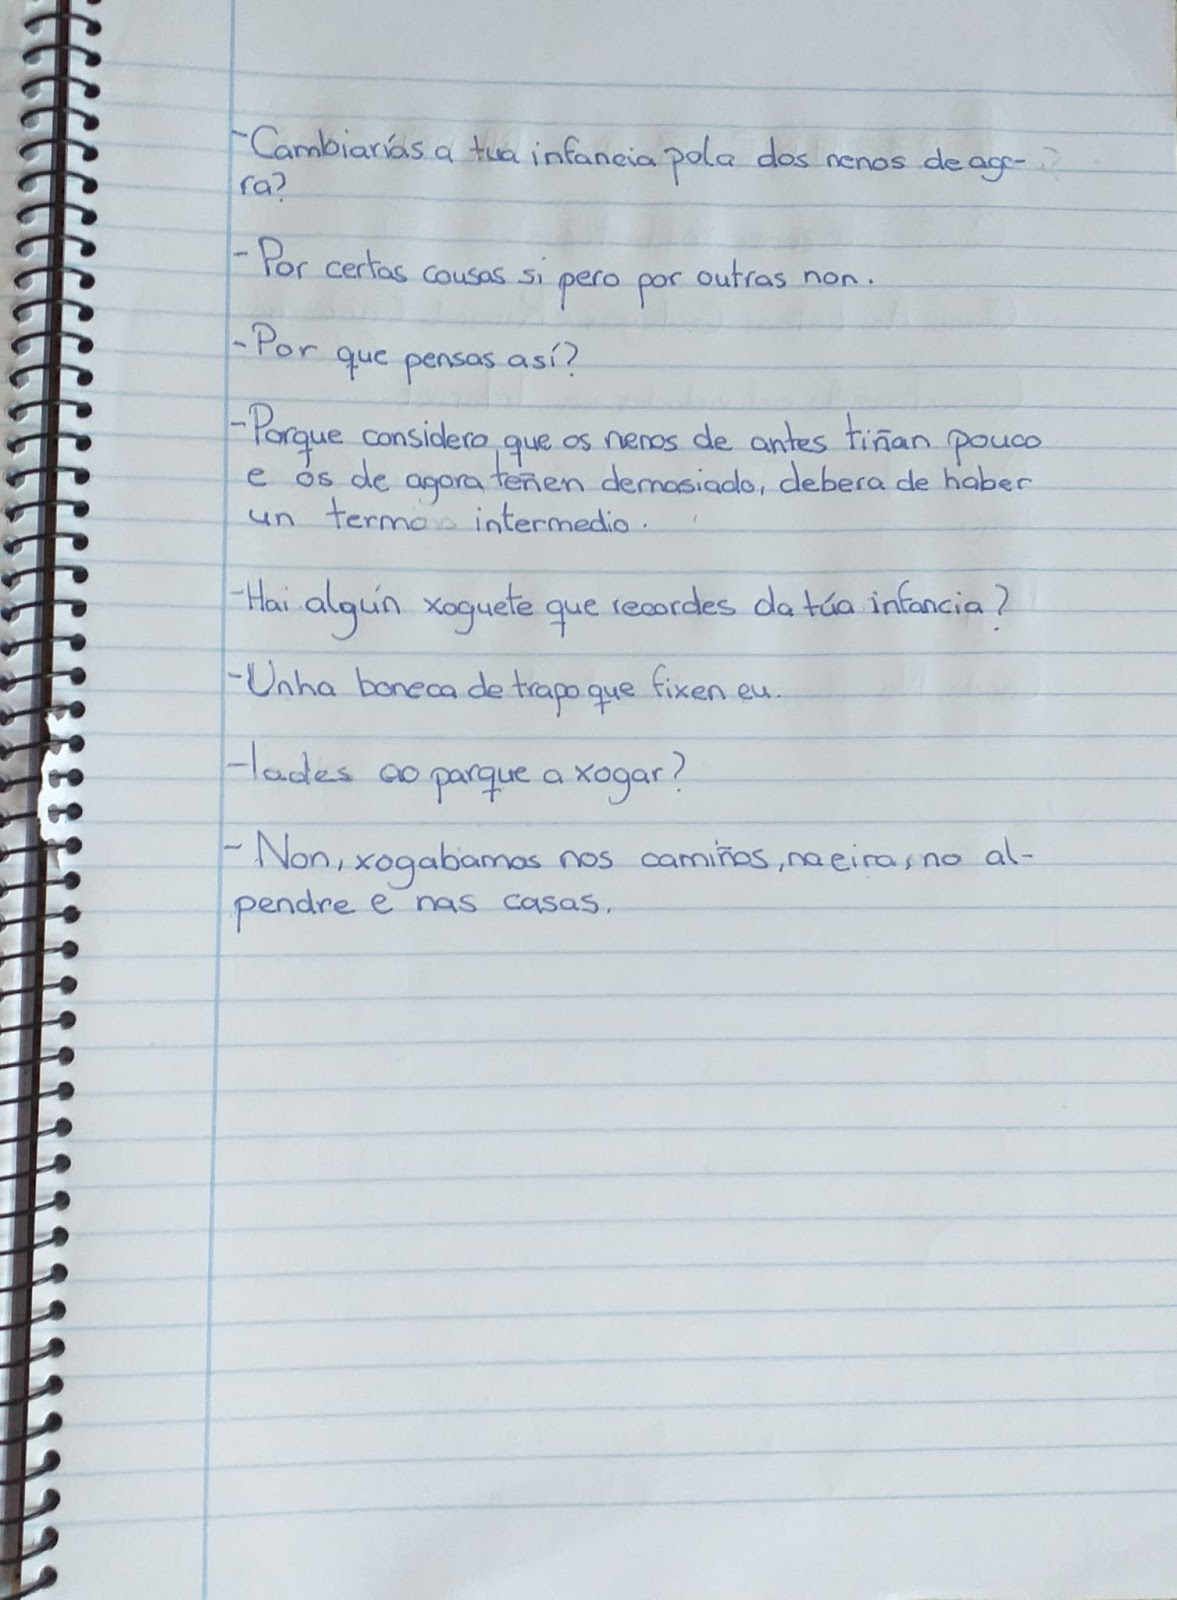 -Cambiarías a tua infancia pola dos nenos de ago-
ra?
-Por certas cousas si pero por outras non.
-Por que pensas así?
-Porque considero que os nenos de antes tiñan pouco
e os de agora teñen demasiado, debera de haber
un termo intermedio.
-Hai algún xoguete que recordes da túa infancia?
-Unha boneca de trapo que fixen eu.
-Iades ao parque a xogar?
-Non, xogabamos nos camiños, na eira, no al-
pendre e nas casas.